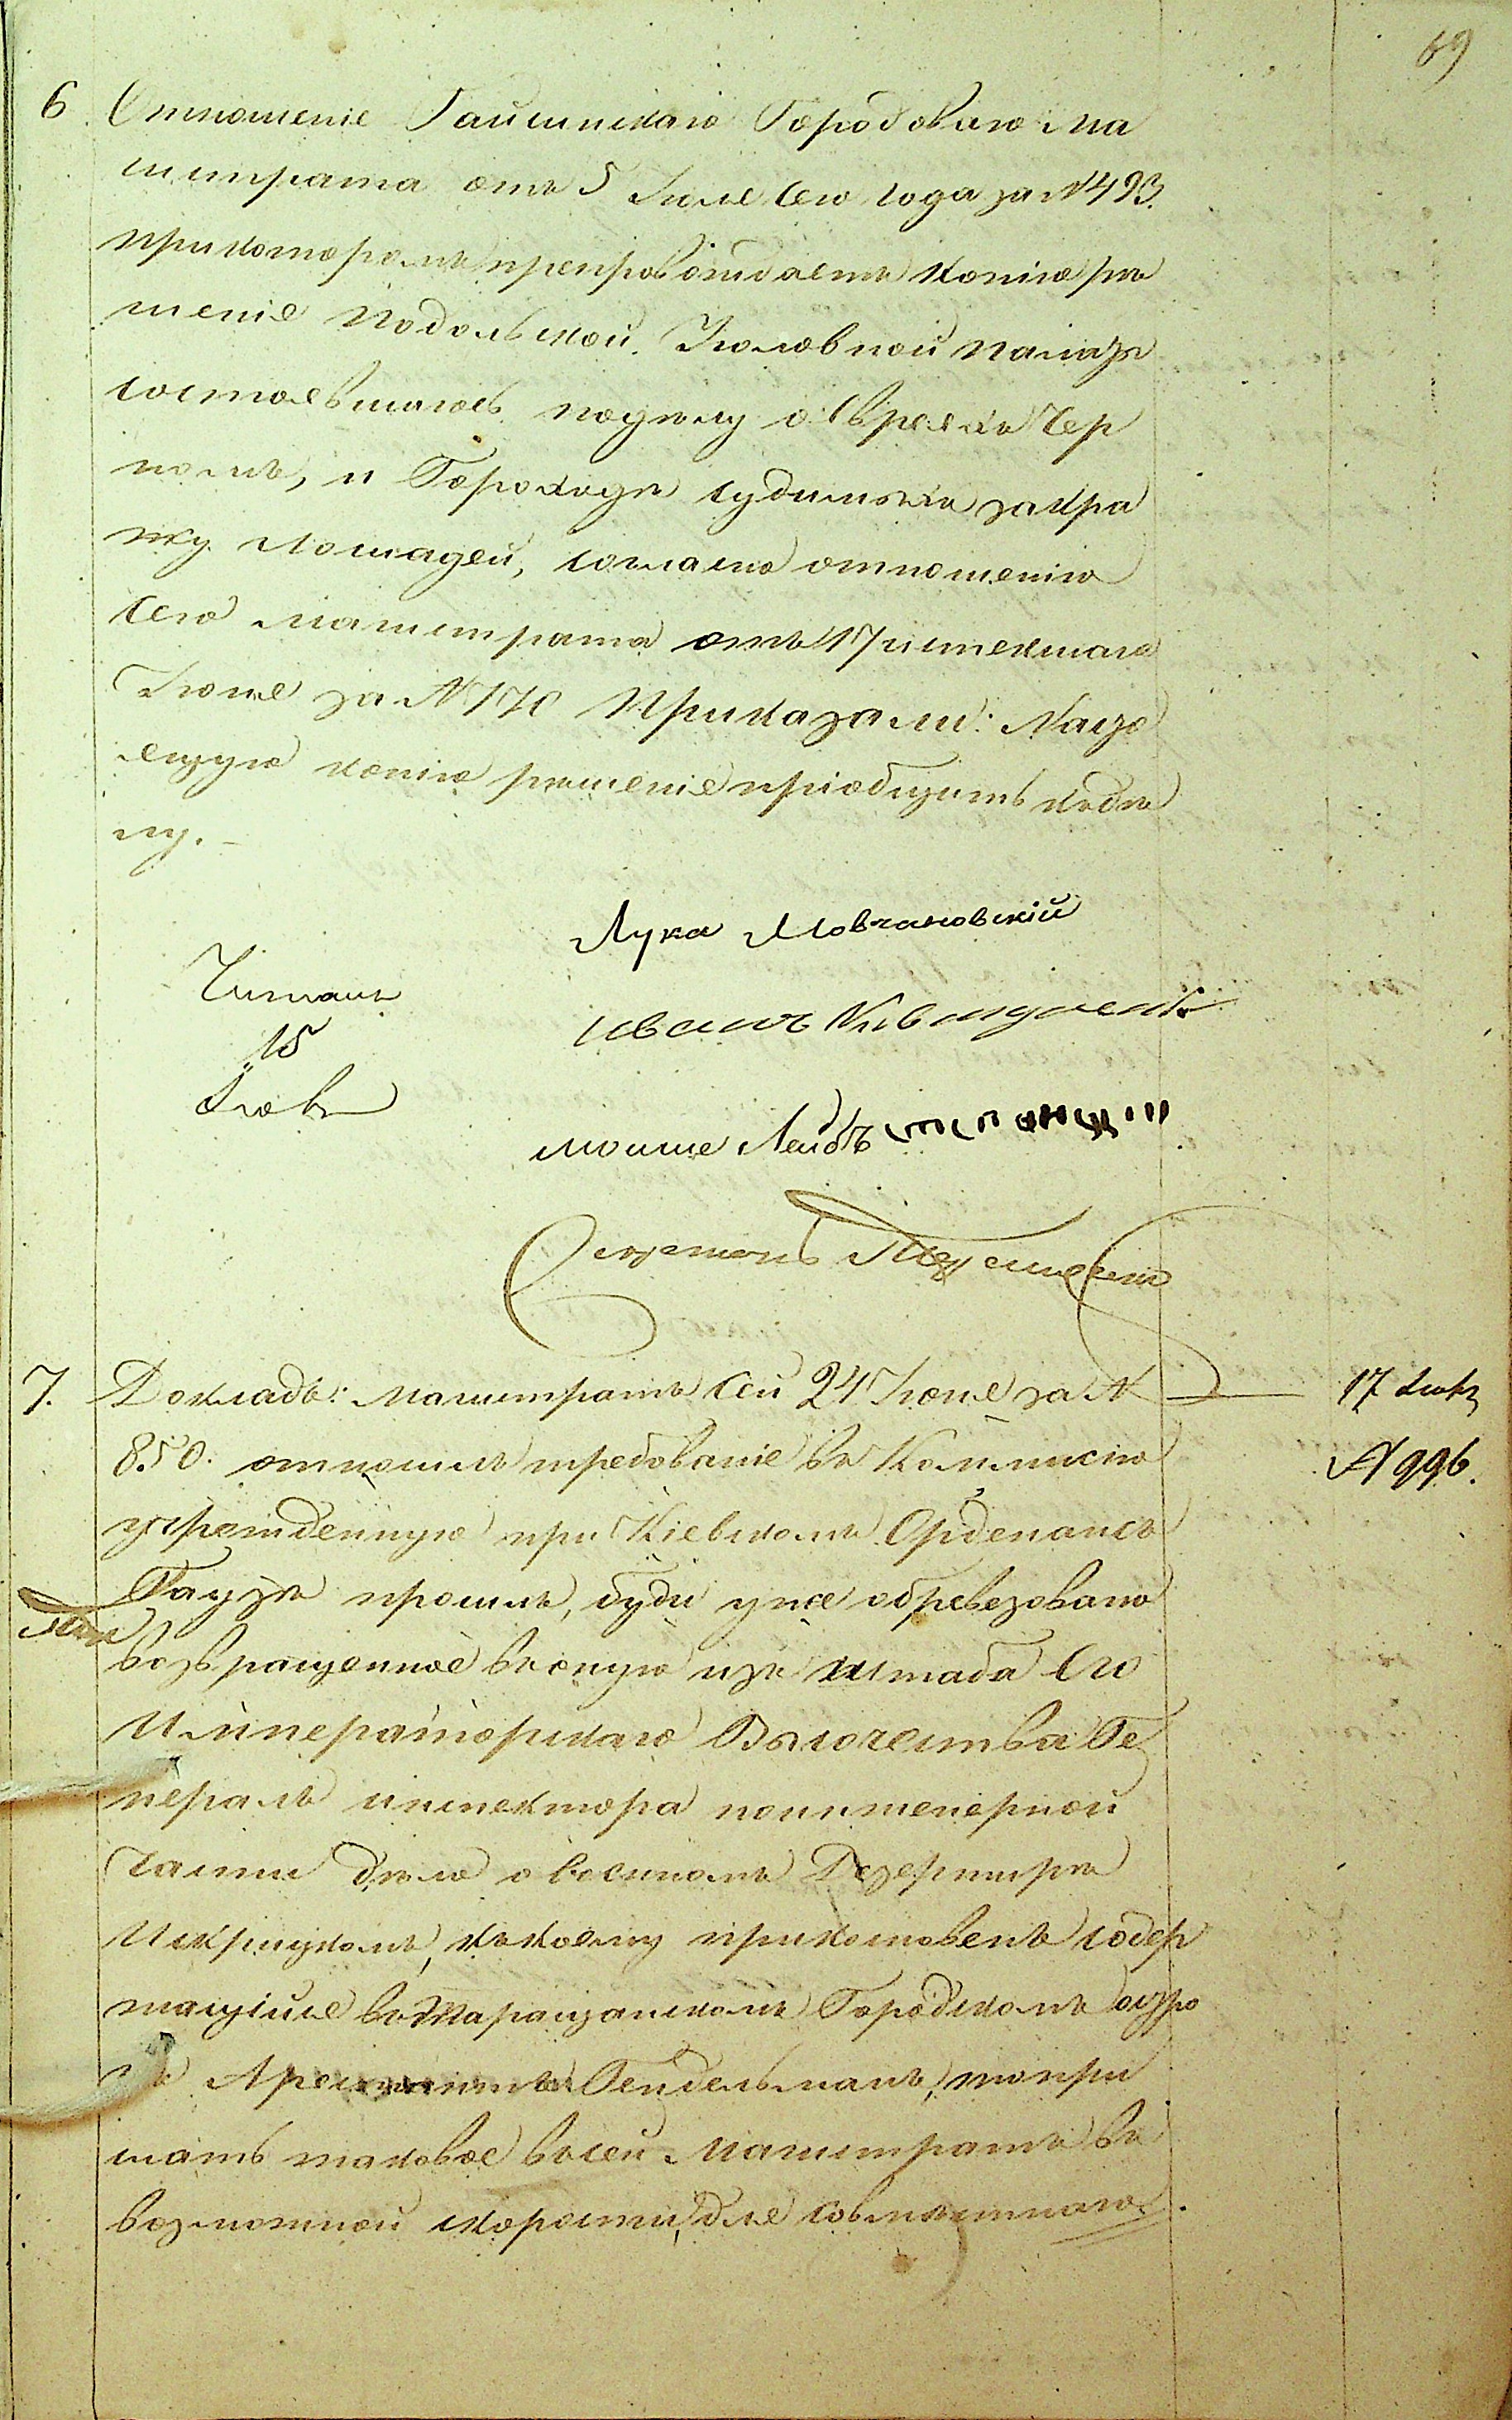 69
6 Отношеніе Гайсинскаго Городоваго Ма
гистрата отъ 5 Іюля сего года за № 493.
прикоторомъ препровождаетъ копію рѣ
шенія Подольской Уголовной палаты
состоявшагось подѣлу о Евреяхъ Чер
номъ, и Городецкъ судимыхъ закра
жу лошадей, согласно отношенію
сего магистрата отъ 17 истекшаго
Іюня за № 770 Приказали: Насто
ящую копію рѣшенія пріобщить кодѣ
лу. –
Лука Мовчановскій
Читалъ
15
Іюля
Иванъ
мошше Лейбъ
Секретарь
7. Докладъ: Магистратъ сей 24 Іюня за №
17 Іюля
850. отношилъ требованіе въ Коммисію
№ 996.
учрежденную при Кіевскомъ Орденансъ
Гаузѣ прошлъ, буди уже обревезовано
возвращенное въоную изъ штаба Его
Императорскаго Высочества Ге
нералъ инспектора поинженерной
Части дѣло о военномъ Дезертирѣ
Искрицкомъ, къкоему прикосновенъ содер
жащійся въ Таращанскомъ Городскомъ остро
гѣ Арестантъ Гендельманъ, топри
слать таковое въсей Магистратъ въ
возможной скорости, для совмѣстнаго